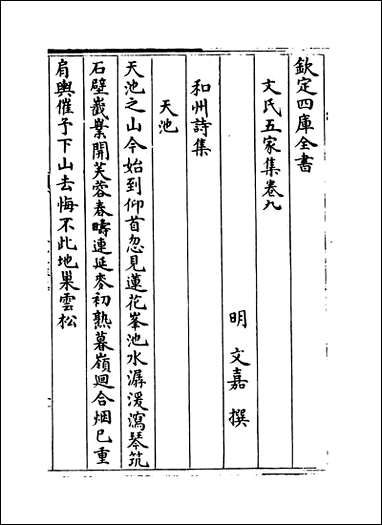 欽定四庫全書
文氏五家集卷九
明 文嘉 撰
和州詩集
天池
天池之山今始到仰首忽見蓮花峯池水潺湲瀉琴筑
石壁嶻嶪開芙蓉春疇連延麥初熟暮嶺迴合烟已重
肩輿催予下山去悔不此地巢雲松